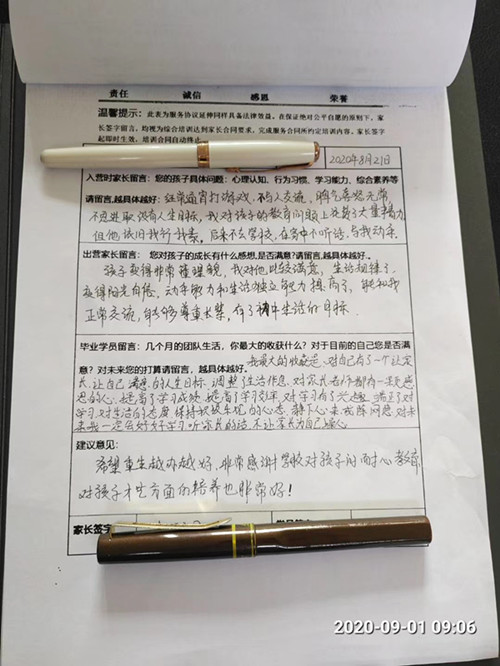 责任 诚信 感恩 荣誉
温馨提示：此表为服务协议延伸同样具备法律效益，在保证绝对公平自愿的原则下，家
长签字留言，均视为综合培训达到家长合同要求，完成服务合同所约定培训内容，家长签字
起即时生效，培训合同自动终止
2020年8月21日
入营时家长留言：您的孩子具体问题：心理认知、行为习惯、学习能力、综合素养等
请留言，越具体越好：经常通宵打游戏，不与人交流，脾气喜怒无常，
不思进取，没有人生目标，我对孩子的教育问题上花费了大量精力
但他依旧我行我素，后来不去学校，在家中不听话，与我动手。
出营家长留言：您对孩子的成长有什么感想，是否满意？请留言，越具体越好。
孩子变得非常懂理貌，我对他比较满意，生活规律了，
变得阳光自信，动手能力和生活独立能力提高了，能和我
正常交流，能够尊重长辈，有了生活的目标.
毕业学员留言：几个月的团队生活，你最大的收获什么？对于目前的自己您是否满
意？对未来您的打算请留言，越具体越好。我最大的收获是，对自己有了一个认定
长，让自己满意的人生目标，调整了生活作息，对家长老师都有一颗感
恩的心，提高了学习成绩，提高了学习效率，对学习有了兴趣，端正了对
学习，对生活的态度，保持积极乐观的心态，静下心来，对未
来我一定会好好学习，听家长的话，不让家长为自己操心
建议意见：
希望重生越办越好，非常感谢学校对孩子的耐心教育，
对孩子才艺方面的培养也非常好！
家长签字
2020-09-01 09:06